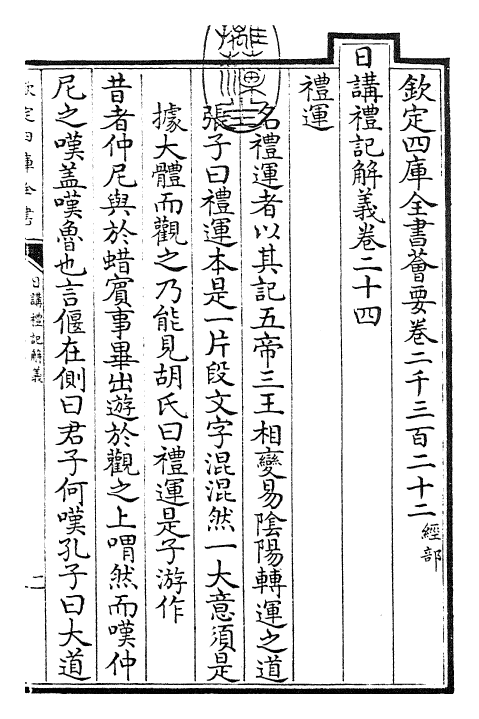 欽定四庫全書薈要卷二千三百二十二 經部
日講禮記解義卷二十四
禮運
名禮運者以其記五帝三王相變易陰陽轉運之道
張子曰禮運本是一片段文字混混然一大意須是
據大體而觀之乃能見胡氏曰禮運是子游作
昔者仲尼與於蜡賓事畢出遊於觀之上喟然而嘆仲
尼之嘆蓋嘆魯也言偃在側曰君子何嘆孔子曰大道
欽定四庫全書
日講禮記解義